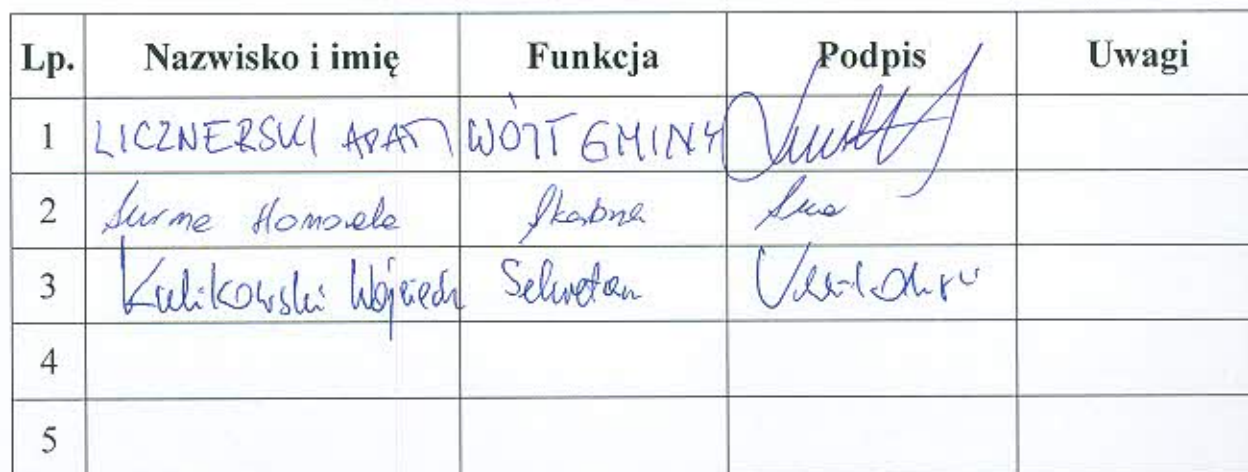 Lp. Nazwisko i imię Funkcja Podpis Uwagi
1 LICZNERSKI ADAM WÓJT GMINY
2 Surma Skarbnik
3 Kulikowski Wojciech Sekretarz
4
5